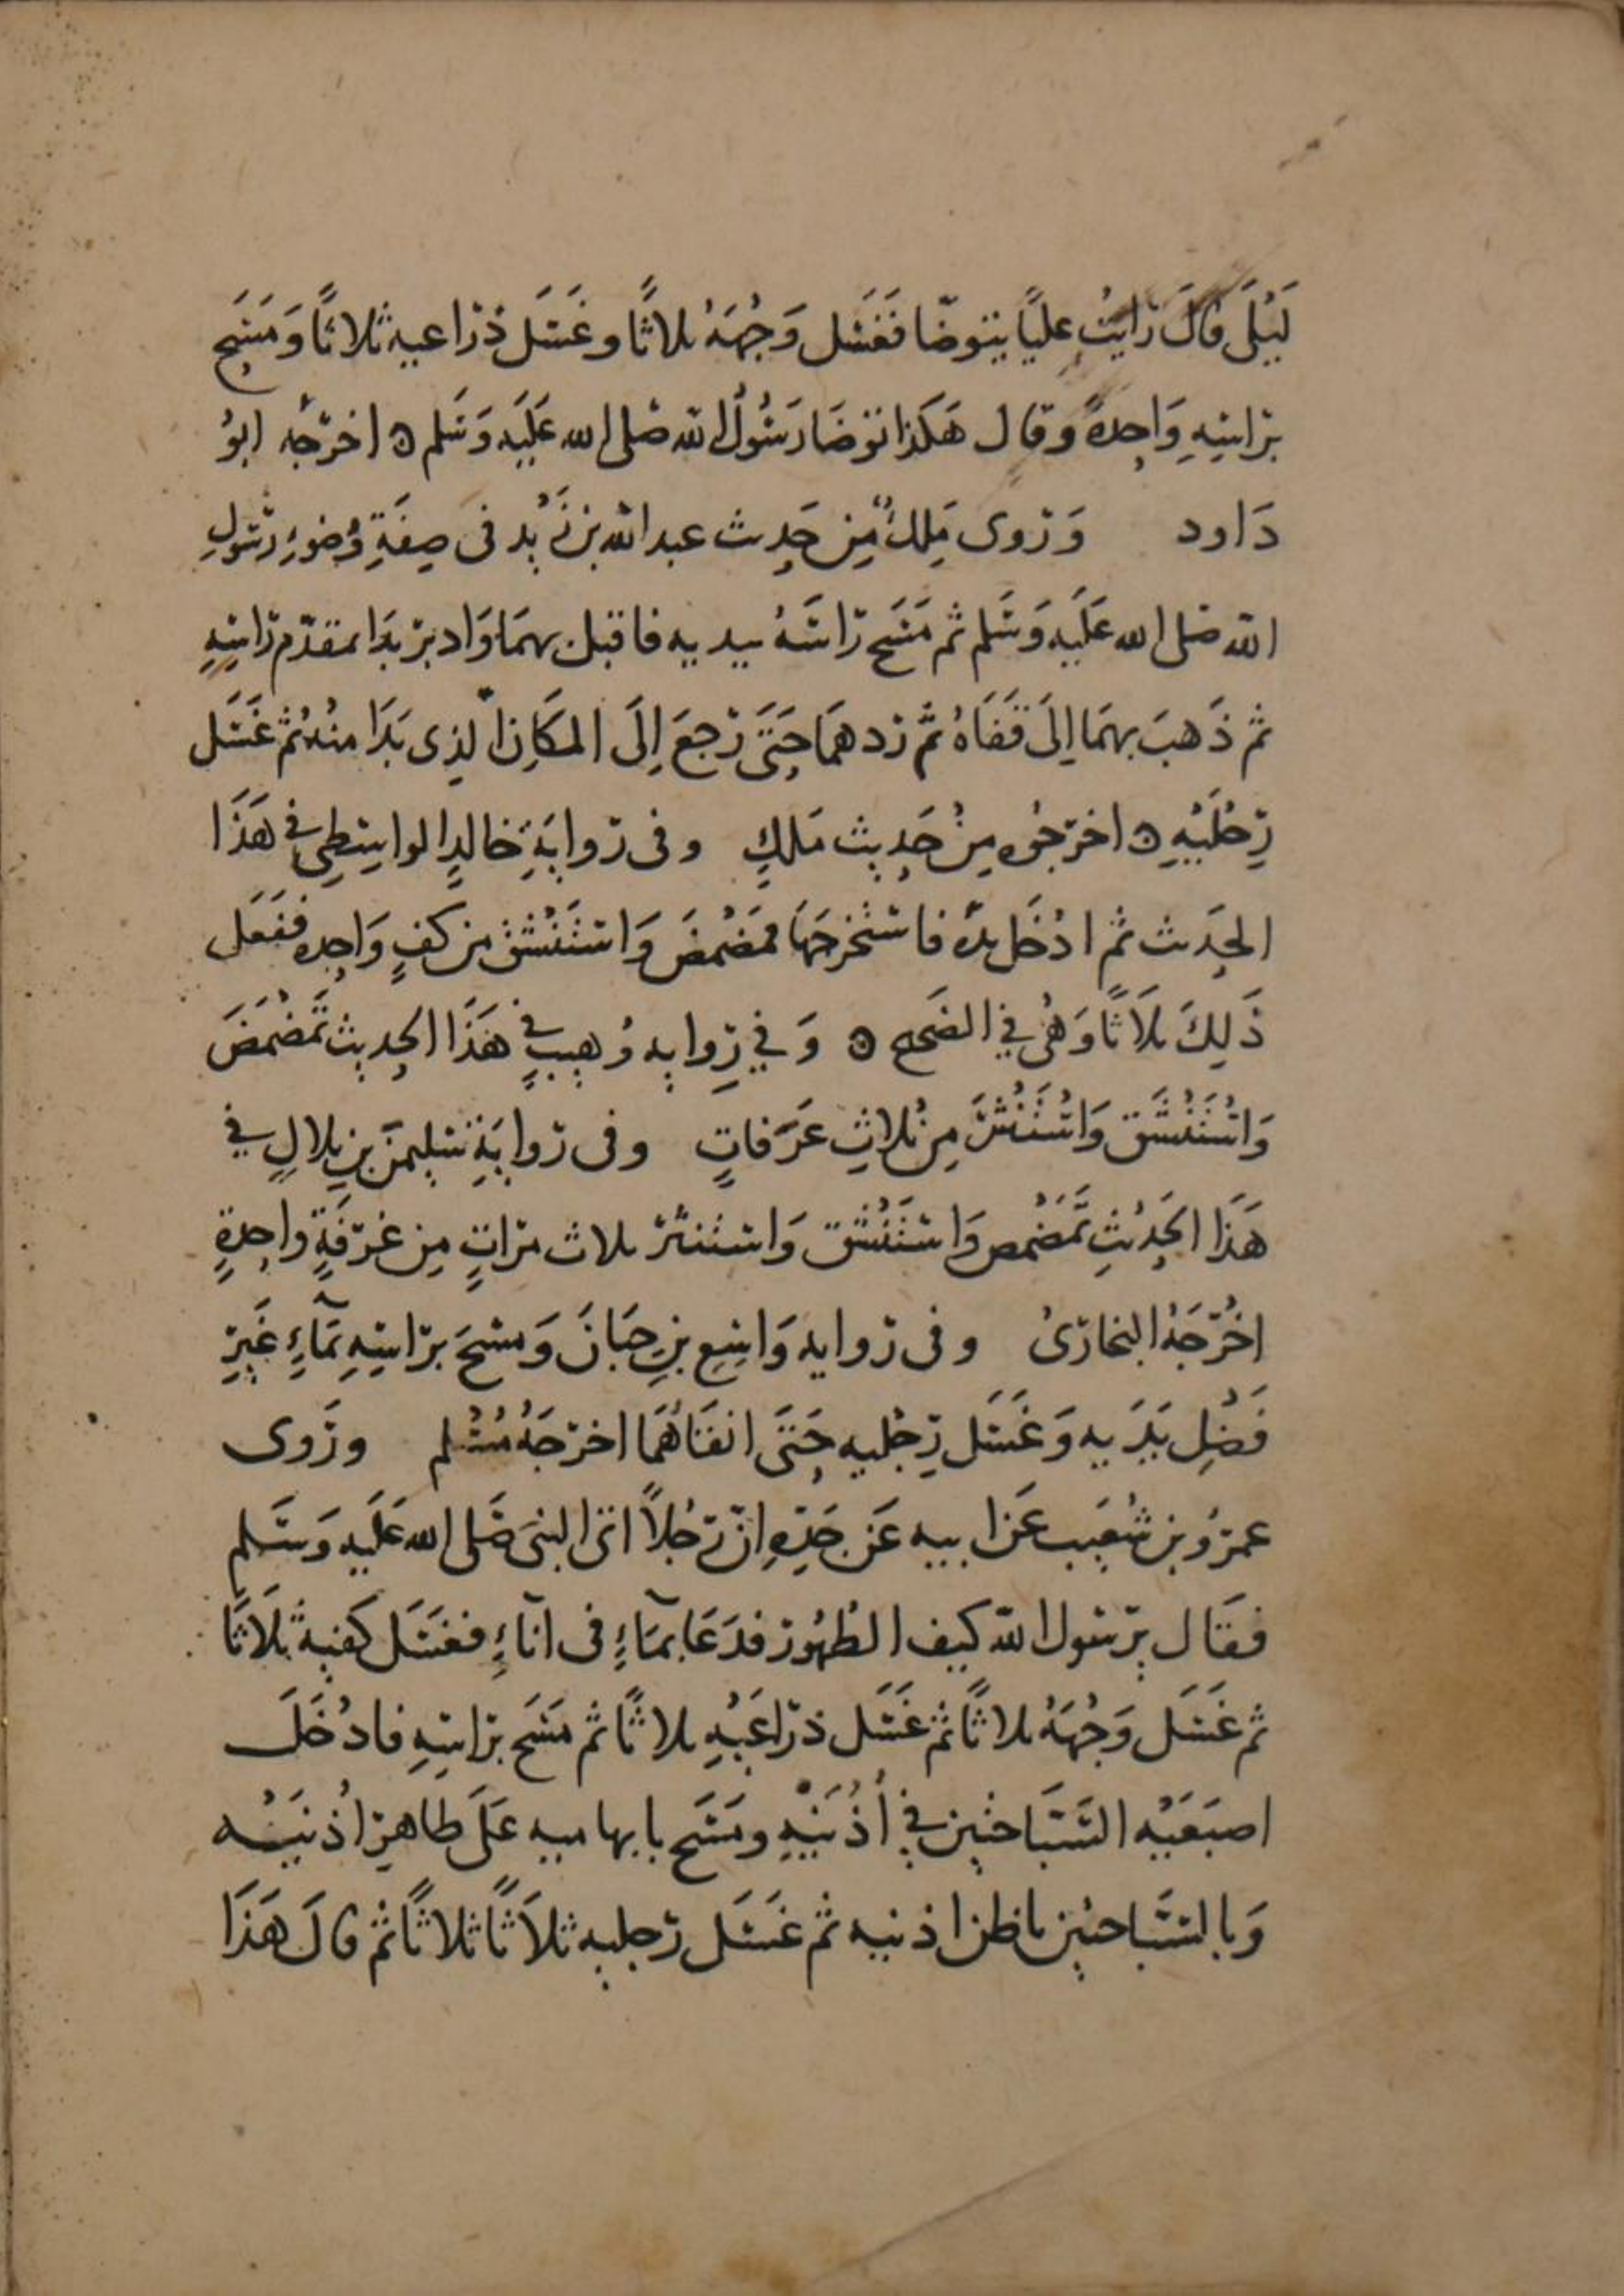 لَيْلَى قالَ رَايتُ عليًا يتوضّا فَغَسَل وَجْهَهُ ثلاثًا وغَسَلَ ذراعيه ثلاثًا وَمَسَح
برَاسِهِ وَاحِدةً وقال هَكَذا توضَا رَسُولُ الله صَلى الله عَلَيه وَسَلم ه اخرَجه ابوُ
دَاود وَرَوى مَلِكٌ مِن حَدِيث عبد الله بن زَيْد فى صِفَةِ وُضوءِ رسُولِ
الله صَلى الله عَلَيه وَسَلم ثم مَسَح رَاسَهُ بيديه فاقبل بهمَا وَادبر بَدَا بمقدّم رَاسِهِ
ثم ذَهبَ بهمَا الِىَ قَفَاهُ ثم ردهمَا حَتَى رَجعَ اِلَى المكَانِ الذِى بَدَا منهُ ثُم غَسَل
رِجْلَيْهِ ه اخرجُوه مِنْ حَدِيث مَلكٍ وفى رَوايَةِ خالدٍ الواسِطِى فى هَذَا
الحَدِيث ثم ادْخَل يدَهُ فاسْتَخرجَهَا فمَضْمَضَ وَاسْتَنْشَق من كفٍ وَاحِده ففَعَل
ذَلِكَ ثلاَثًا وَهُى فِي الصَحيح ه وَفِي رِوايه وُهيبٍ فى هَذَا الحديث تَمَضْمَضَ
وَاسْتَنْشَق وَاسْتَنْثَرَ مِنْ ثلاثِ غَرَفاتٍ وفى رَوايَةِ سُليمنَ بنِ بلالٍ فى
هَذَا الحَدِيْثِ تمَضْمض وَاسْتَنْشَق وَاستنثر ثلاث مرّاتٍ مِن غرْفَةٍ واحِدةٍ
اخْرَجَهُ البخارىُ وفى رَوايه وَاسِعِ بنِ حَبَانَ وَمسَحَ برَاسِهِ بمَآءٍ غَيرِ
فَضْلِ يَدَيه وَغَسَل رِجْليه حَتَى انقَاهُمَا اخرَجَهُ مُسْلم ورَوى
عمرُو بن شُعَيب عَن ابيه عَن جَدّهِ انّ رَجُلاً اتى النبىَ صَلى الله عَلَيه وَسَلم
فقَال يرَسُول الله كيف الطُهُور فدَعَا بمَآءٍ فى انآءٍ فغَسَل كَفيهِ ثَلاَثًا
ثم غَسَل وَجْهَهُ ثلاثًا ثم غَسَل ذرَاعَيْهِ ثلاثًا ثم مَسَح برَاسِهِ فادْخَل
اصبَعَيْه السَّبَاحَتِين فِي أُذُنَيْهِ ومَسَح بابهاميه عَلَى ظاهِرِ اُذنَيْه
وَبالسَّبَاحتين باطن اذنيه ثم غَسَل رَجليه ثلاَثًا ثلاثًا ثم قالَ هَذَا